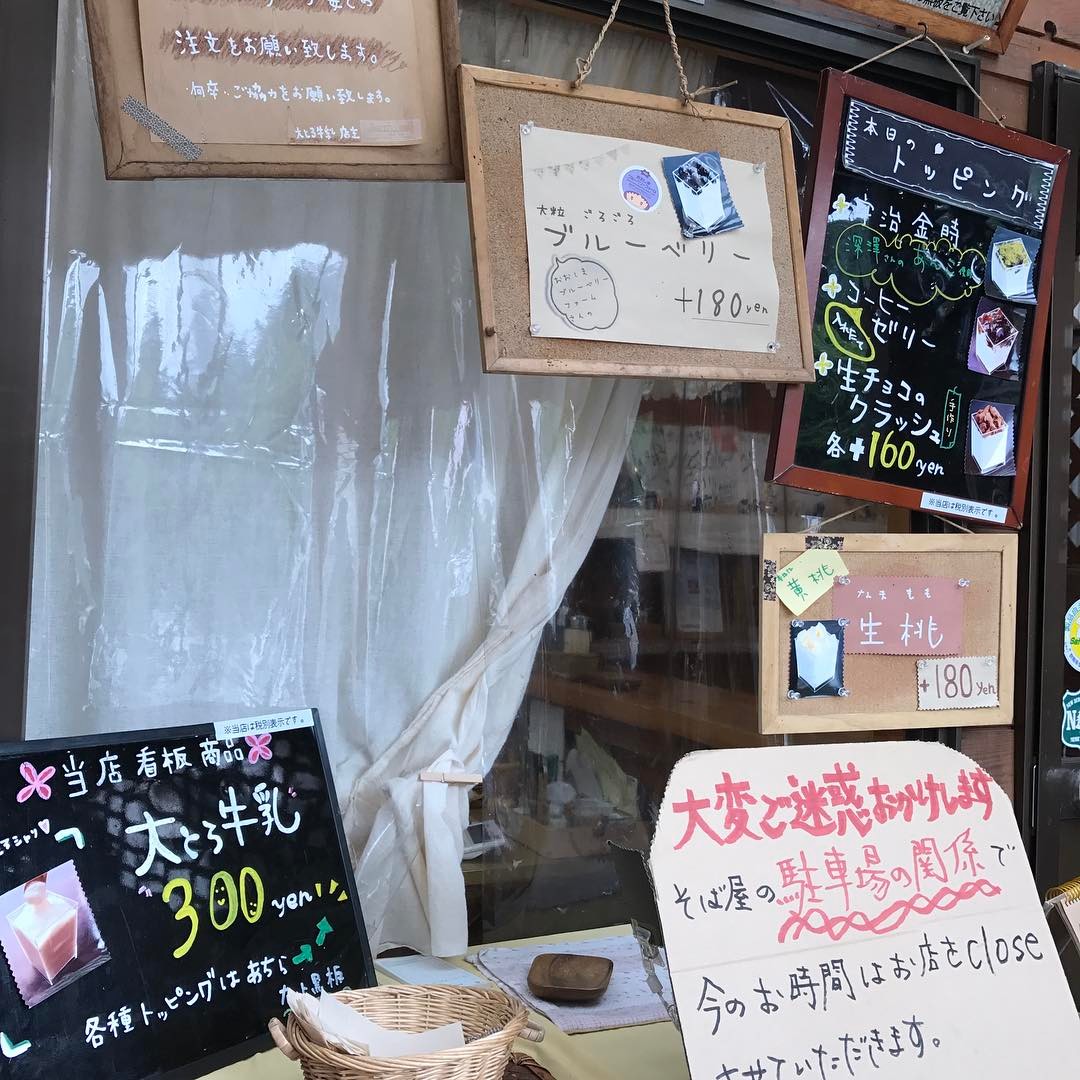 注文をお願い致します。
何卒、ご協力をお願い致します。
大とろ牛乳 店主
大粒 ごろごろ
ブルーベリー
おおしま
ブルーベリー
ファーム
さんの
+180yen
本日の
トッピング
宇治金時
深澤さんのあんこ使用
コーヒー
ゼリー
入れたて
生チョコの
クラッシュ
手作り
各+160yen
※当店は税別表示です。
黄桃
なま もも
生桃
+180yen
※当店は税別表示です。
当店看板商品
大とろ牛乳
300yen
各種トッピングはあちら
大変ご迷惑おかけします
そば屋の駐車場の関係で
今のお時間はお店をclose
させていただきます。